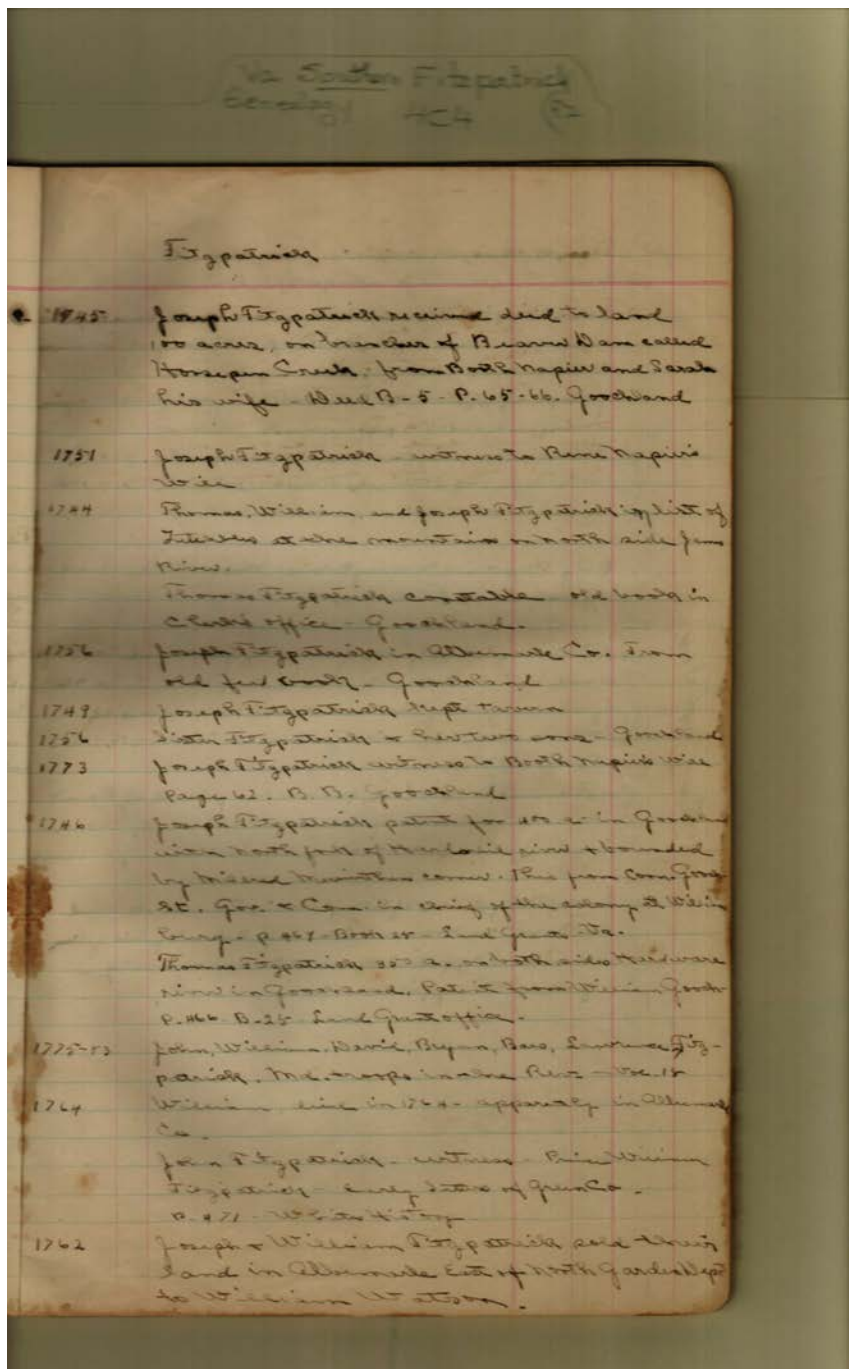 Va Southern Fitzpatrick
Genealogy 4C4
Fitzpatrick
1745 Joseph Fitzpatrick received deed to land
100 acres, on branches of Beaver Dam called
Horsepen Creek, from Booth Napier and Sarah
his wife - Deed B-5 - P. 65-66. Goochland
1751 Joseph Fitzpatrick witness to Rene Napier's
Will
1744 Thomas, William, and Joseph Fitzpatrick list of
at the mountains on north side James
River.
Thomas Fitzpatrick constable old book in
Clerk's office - Goochland.
1756 Joseph Fitzpatrick in Albemarle Co. From
old fee book - Goochland
1749 Joseph Fitzpatrick kept tavern
1756 Sister Fitzpatrick + her two sons - Goochland
1773 Joseph Fitzpatrick witness to Booth Napier's Will
Page 62. B. B. Goochland
1746 Joseph Fitzpatrick patent for 400 a in Goochland
north fork of river + bounded
by corner. This from
Gov. + Com. in of the colony at
burg - p. 467 - Book 25 - Land Grants Va.
Thomas Fitzpatrick 350 a. on both sides Hardware
river in Goochland. Patent from William Gooch
P. 466 B-25 Land Grant office.
1775-83 John, William, David, Bryan, Lawrence Fitz-
patrick, Md. troops in the Rev. - Vol. 18
1764 William in 1764 - apparently in Albemarle
Co.
John Fitzpatrick - witness - William
Fitzpatrick - early of Co.
P. 471
1762 Joseph + William Fitzpatrick sold their
land in Albemarle East of North Garden Dept
to William Watson.